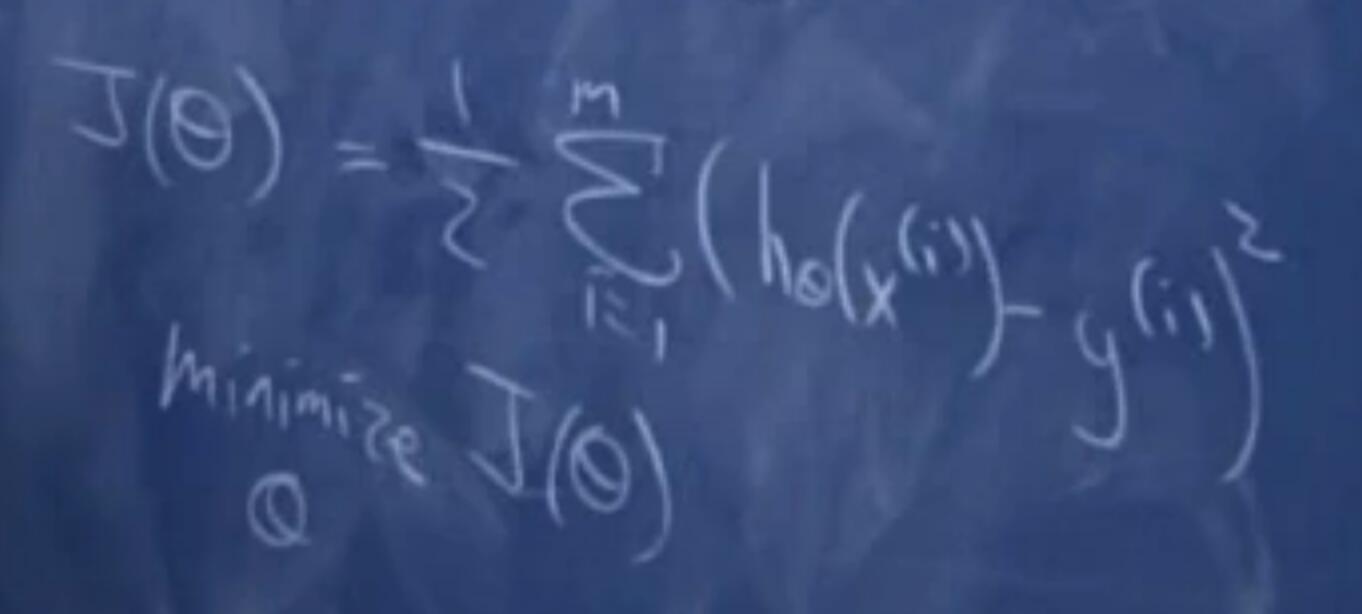 J(θ) = 1/2 Σ_{i=1}^{m} (h_θ(x^{(i)}) - y^{(i)})^2
minimize J(θ)
θ